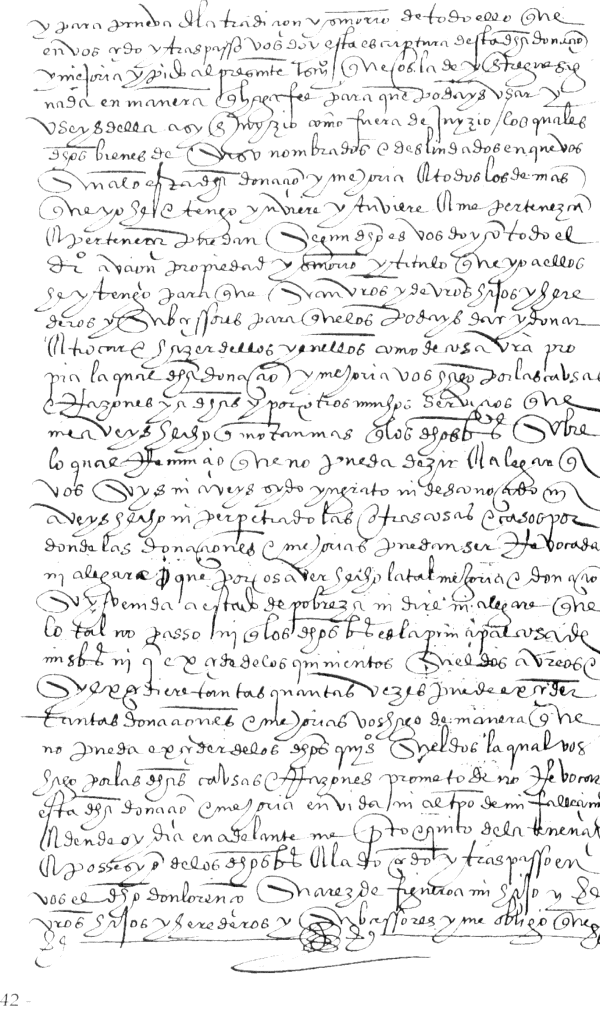 y para prueva de la tradicion y señorio de todo ello que
en vos çedo y traspasso vos doy esta escriptura desta dha donaçio
y mejoria y pido al presente que os la de y entregue sig
nada en manera q haga fee para que podays usar y
useys della asy en juyzio como fuera de juyzio / los quales
dhos bienes de suso nombrados e deslindados en que vos
señalo esta dha donaçio y mejoria A todos los demas
que yo he e tengo y uviere y tuviere A me pertenezcã
A pertenecer puedan Segun dho es vos doy con todo el
dro açion propiedad y señorio y titulo que yo a ellos
he y tengo para que Sean vros y de vros hijos y here
deros y Subçessores para que los podays dar y donar
A trocar e hazer dellos y en ellos como de cosa vra pro
pia la qual dha donaçio y mejoria vos hago por las causas
e Razones ya dhas y por otros muchos serviçios que
me aveys hecho q montan mas q los dhos bs Sobre
lo qual Renunçio que no pueda dezir A alegar q
vos Soys ni aveys sydo yngrato ni desconoçido ni
aveys hecho ni perpetrado las otras cosas e casos por
donde las donaçiones e mejorias puedan ser Revocadas
ni alegare que por os aver hecho la tal mejoria e donaçio
Soy venido a estado de pobreza ni dire ni alegare que
lo tal no passo ni q los dhos bs es la prinçipal cosa de
mis bs ni q exçede de los quinientos Sueldos aureos e
Sy exçediere tantas quantas vezes puede exçeder
tantas donaçiones e mejorias vos hago de manera que
no pueda exçeder de los dhos qos Sueldos la qual vos
hago por las dhas causas e Razones prometo de no Revocar
esta dha donaçio e mejoria en vida ni al tpo de mi falleçimi
A dende oy dia en adelante me pto e quito de la tenençia
A possesyon de los dhos bs A la do çedo y traspasso en
vos el dho don lorenço Suarez de figueroa mi hijo y en
vros hijos y herederos y Subçessores y me obligo que
42 -